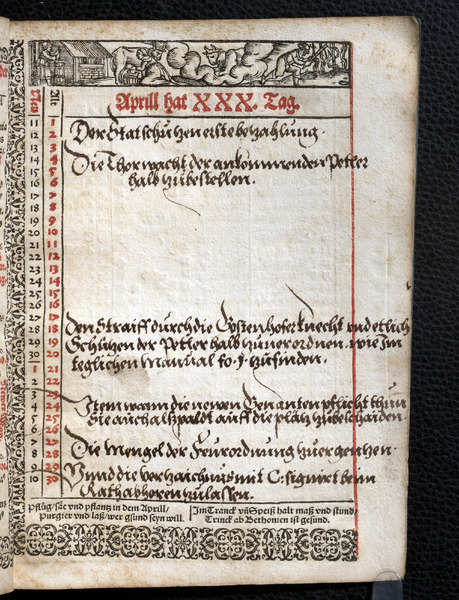 Aprill hat XXX. Tag.
New Alt
11 1 Der Statschützen erste bezahlung.
12 2
13 3 Die Thor wacht der ankommenden Petler
14 4 halb zubestellen.
15 5
16 6
17 7
18 8
19 9
20 10
21 11
22 12
23 13
24 14
25 15
26 16
27 17 den Straiff durch die Gostenhofer Knecht und etlich
28 18 Schützen der Petler halb zuuerordnen, wie im
29 19 teglichen Manual fo. zufinden.
30 20
1 21
2 22
3 23 Item wann die newen Genanten pflicht thun
4 24 die auch alspaldt auff die plätz zubeschaiden.
5 25
6 26
7 27 Die Mengel der Feurordnung zuergentzen.
8 28
9 29 Vnnd die verzaichnus mit C. signirt beim
10 30 Rath abhören zulassen.
Pflüg/säe vnd pflantz in dem Aprill/
Purgier vnd laß/wer gsund seyn will.
Im Tranck vñ Speiß halt maß vnd stund/
Trinck ab Bethonien ist gesund.